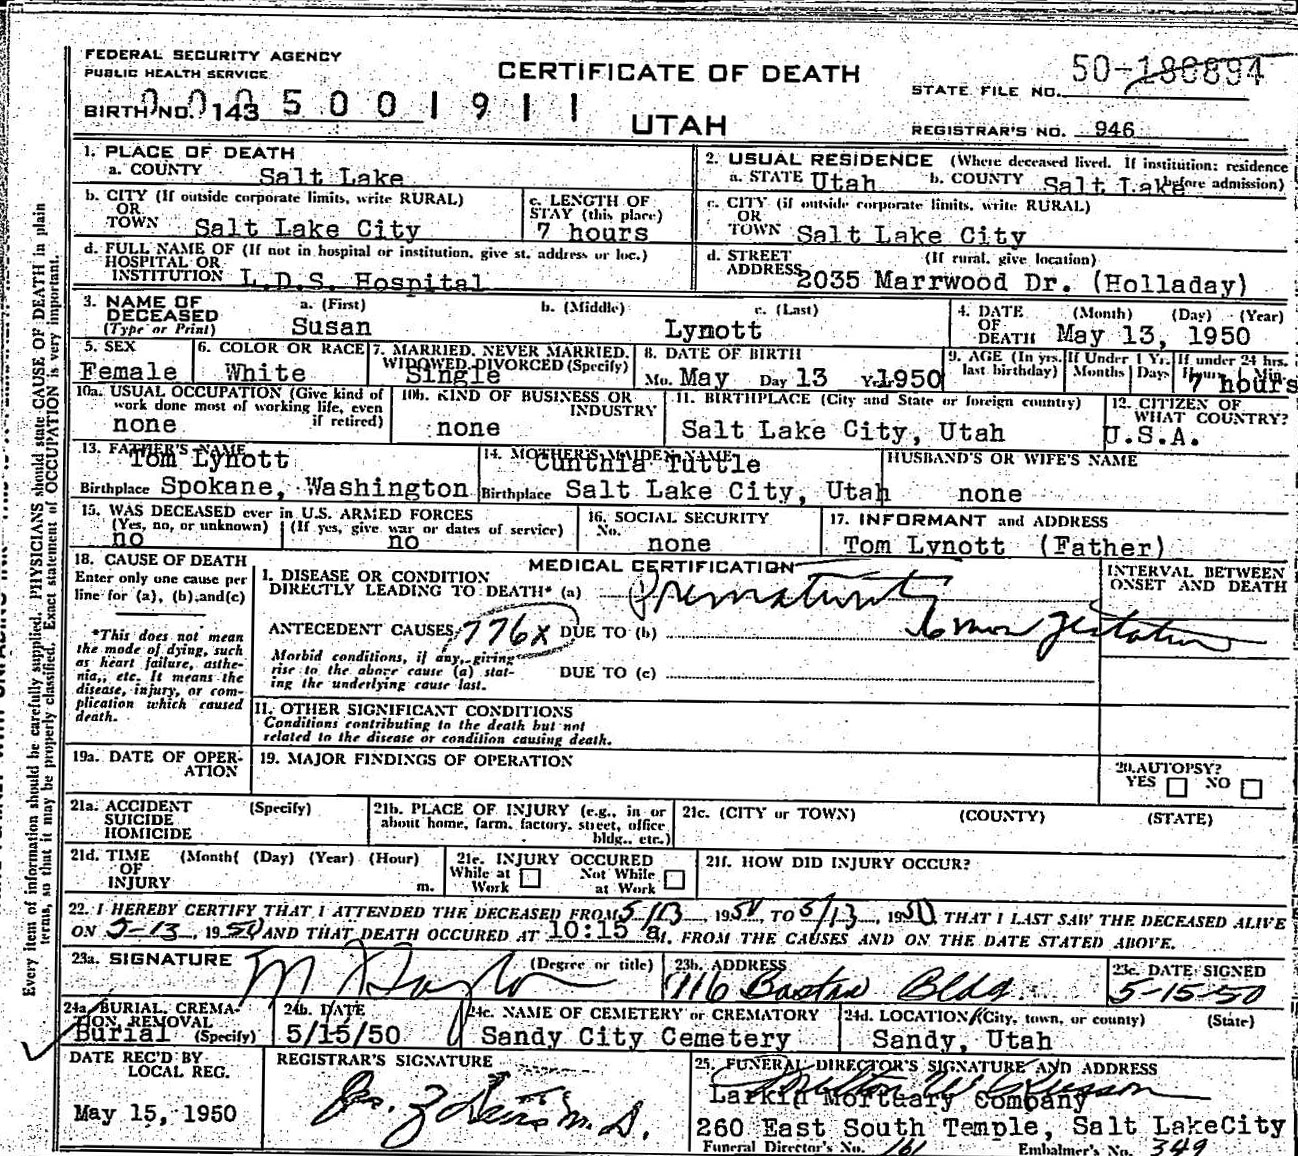 FEDERAL SECURITY AGENCY
PUBLIC HEALTH SERVICE
CERTIFICATE OF DEATH
50-188894
STATE FILE NO.
BIRTH NO. 143 5 0 0 1 9 1 1
UTAH
REGISTRAR'S NO. 946
1. PLACE OF DEATH
a. COUNTY Salt Lake
2. USUAL RESIDENCE (Where deceased lived. If institution: residence before admission)
a. STATE Utah b. COUNTY Salt Lake
b. CITY (If outside corporate limits, write RURAL)
OR
TOWN Salt Lake City
c. LENGTH OF
STAY (this place)
7 hours
c. CITY (if outside corporate limits, write RURAL)
OR
TOWN Salt Lake City
d. FULL NAME OF (If not in hospital or institution, give st. address or loc.)
HOSPITAL OR
INSTITUTION L.D.S. Hospital
d. STREET (If rural, give location)
ADDRESS 2035 Marrwood Dr. (Holladay)
3. NAME OF DECEASED
(Type or Print)
a. (First) b. (Middle) c. (Last)
Susan Lynott
4. DATE OF DEATH (Month) (Day) (Year)
May 13, 1950
5. SEX
Female
6. COLOR OR RACE
White
7. MARRIED, NEVER MARRIED,
WIDOWED, DIVORCED (Specify)
Single
8. DATE OF BIRTH
Mo. May Day 13 Yr. 1950
9. AGE (In yrs. last birthday)
If Under 1 Yr.
Months Days
If under 24 hrs.
Hours Min.
7 hours
10a. USUAL OCCUPATION (Give kind of
work done most of working life, even
if retired)
none
10b. KIND OF BUSINESS OR
INDUSTRY
none
11. BIRTHPLACE (City and State or foreign country)
Salt Lake City, Utah
12. CITIZEN OF
WHAT COUNTRY?
U.S.A.
13. FATHER'S NAME
Tom Lynott
Birthplace Spokane, Washington
14. MOTHER'S MAIDEN NAME
Cunthia Tuttle
Birthplace Salt Lake City, Utah
HUSBAND'S OR WIFE'S NAME
none
15. WAS DECEASED ever in U.S. ARMED FORCES
(Yes, no, or unknown) (If yes, give war or dates of service)
no no
16. SOCIAL SECURITY
No.
none
17. INFORMANT and ADDRESS
Tom Lynott (Father)
18. CAUSE OF DEATH
Enter only one cause per
line for (a), (b), and (c)
*This does not mean
the mode of dying, such
as heart failure, asthe-
nia, etc. It means the
disease, injury, or com-
plication which caused
death.
MEDICAL CERTIFICATION
I. DISEASE OR CONDITION
DIRECTLY LEADING TO DEATH* (a) Prematurity
ANTECEDENT CAUSES 776X DUE TO (b) 6 mon gestation
Morbid conditions, if any, giving
rise to the above cause (a) stat-
ing the underlying cause last.
DUE TO (c)
INTERVAL BETWEEN
ONSET AND DEATH
11. OTHER SIGNIFICANT CONDITIONS
Conditions contributing to the death but not
related to the disease or condition causing death.
19a. DATE OF OPER-
ATION
19. MAJOR FINDINGS OF OPERATION
20. AUTOPSY?
YES NO
21a. ACCIDENT (Specify)
SUICIDE
HOMICIDE
21b. PLACE OF INJURY (e.g., in or
about home, farm, factory, street, office
bldg., etc.)
21c. (CITY or TOWN) (COUNTY) (STATE)
21d. TIME (Month( (Day) (Year) (Hour)
OF
INJURY m.
21e. INJURY OCCURED
While at Work
Not While at Work
21f. HOW DID INJURY OCCUR?
22. I HEREBY CERTIFY THAT I ATTENDED THE DECEASED FROM 5/13, 1950 TO 5/13, 1950 THAT I LAST SAW THE DECEASED ALIVE
ON 5-13, 1950 AND THAT DEATH OCCURED AT 10:15 a M. FROM THE CAUSES AND ON THE DATE STATED ABOVE.
23a. SIGNATURE (Degree or title)
23b. ADDRESS
716 Boston Bldg
23c. DATE SIGNED
5-15-50
24a. BURIAL, CREMA-
TION, REMOVAL
Burial (Specify)
24b. DATE
5/15/50
24c. NAME OF CEMETERY or CREMATORY
Sandy City Cemetery
24d. LOCATION (City, town, or county) (State)
Sandy, Utah
DATE REC'D BY
LOCAL REG.
May 15, 1950
REGISTRAR'S SIGNATURE
M.D.
25. FUNERAL DIRECTOR'S SIGNATURE AND ADDRESS
Larkin Mortuary Company
260 East South Temple, Salt LakeCity
Funeral Director's No. 161 Embalmer's No. 349
Every item of information should be carefully supplied. PHYSICIANS should state CAUSE OF DEATH in plain
terms, so that it may be properly classified. Exact statement of OCCUPATION is very important.